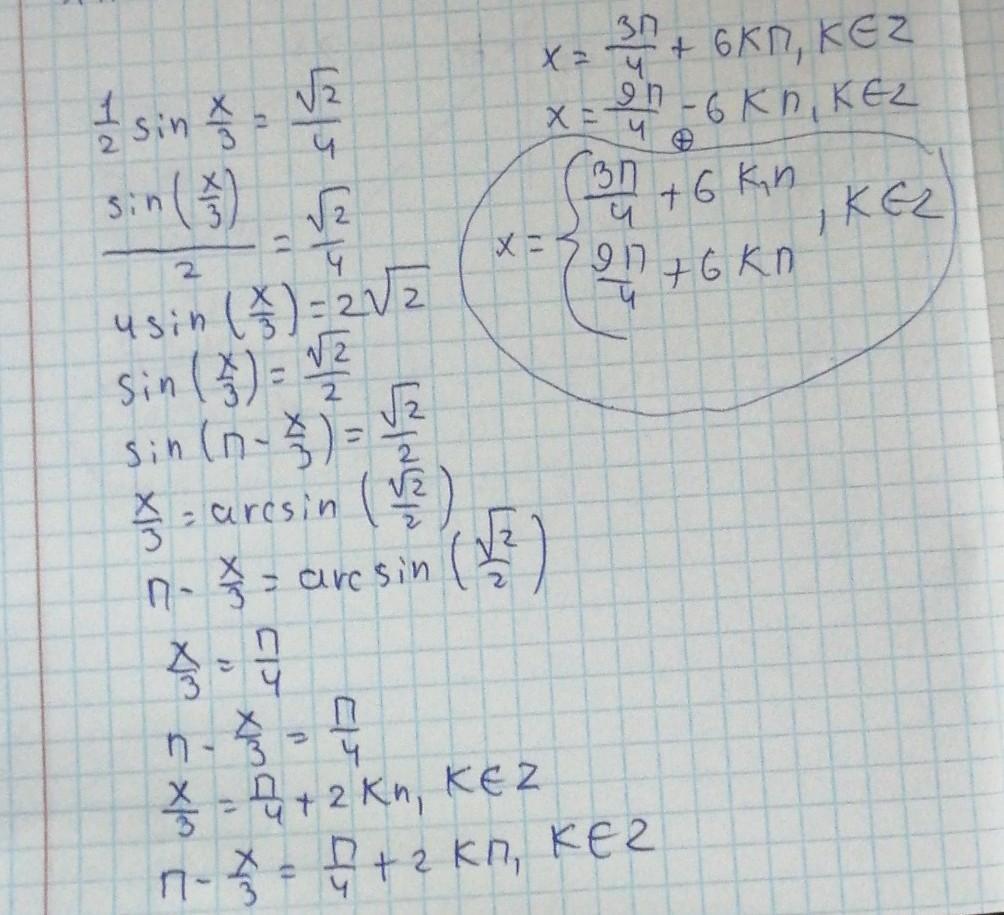 1/2 sin x/3 = √2/4
sin(x/3)/2 = √2/4
4sin(x/3) = 2√2
sin(x/3) = √2/2
sin(π - x/3) = √2/2
x/3 = arcsin(√2/2)
π - x/3 = arcsin(√2/2)
x/3 = π/4
π - x/3 = π/4
x/3 = π/4 + 2Kπ, K∈Z
π - x/3 = π/4 + 2Kπ, K∈Z
x = 3π/4 + 6Kπ, K∈Z
x = 9π/4 - 6Kπ, K∈Z
⊕
x = { 3π/4 + 6K,π
9π/4 + 6Kπ , K∈Z